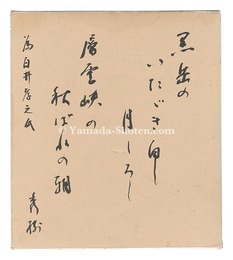 黒岳の
いたゞき白し
月しろし
層雲峡の
秋ばれの朝
為白井孝之氏
© Yamada-Shoten.com